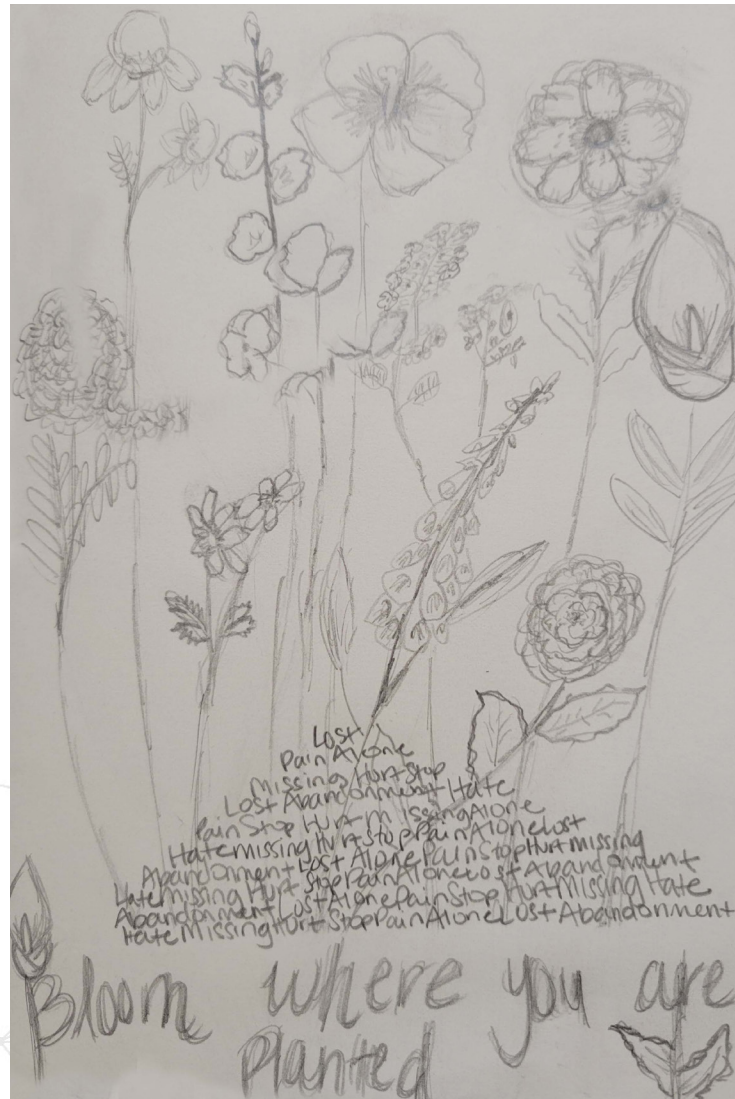 Lost
Pain Alone
Missing Hurt Stop
Lost Abandonment Hate
Pain Stop Hurt Missing Alone
Hate Missing Hurt Stop Pain Alone Lost
Abandonment Lost Alone Pain Stop Hurt missing
Hate missing Hurt Stop Pain Alone Lost Abandonment
Abandonment Lost Alone Pain Stop Hurt Missing Hate
Hate Missing Hurt Stop Pain Alone Lost Abandonment
Bloom where you are
Planted